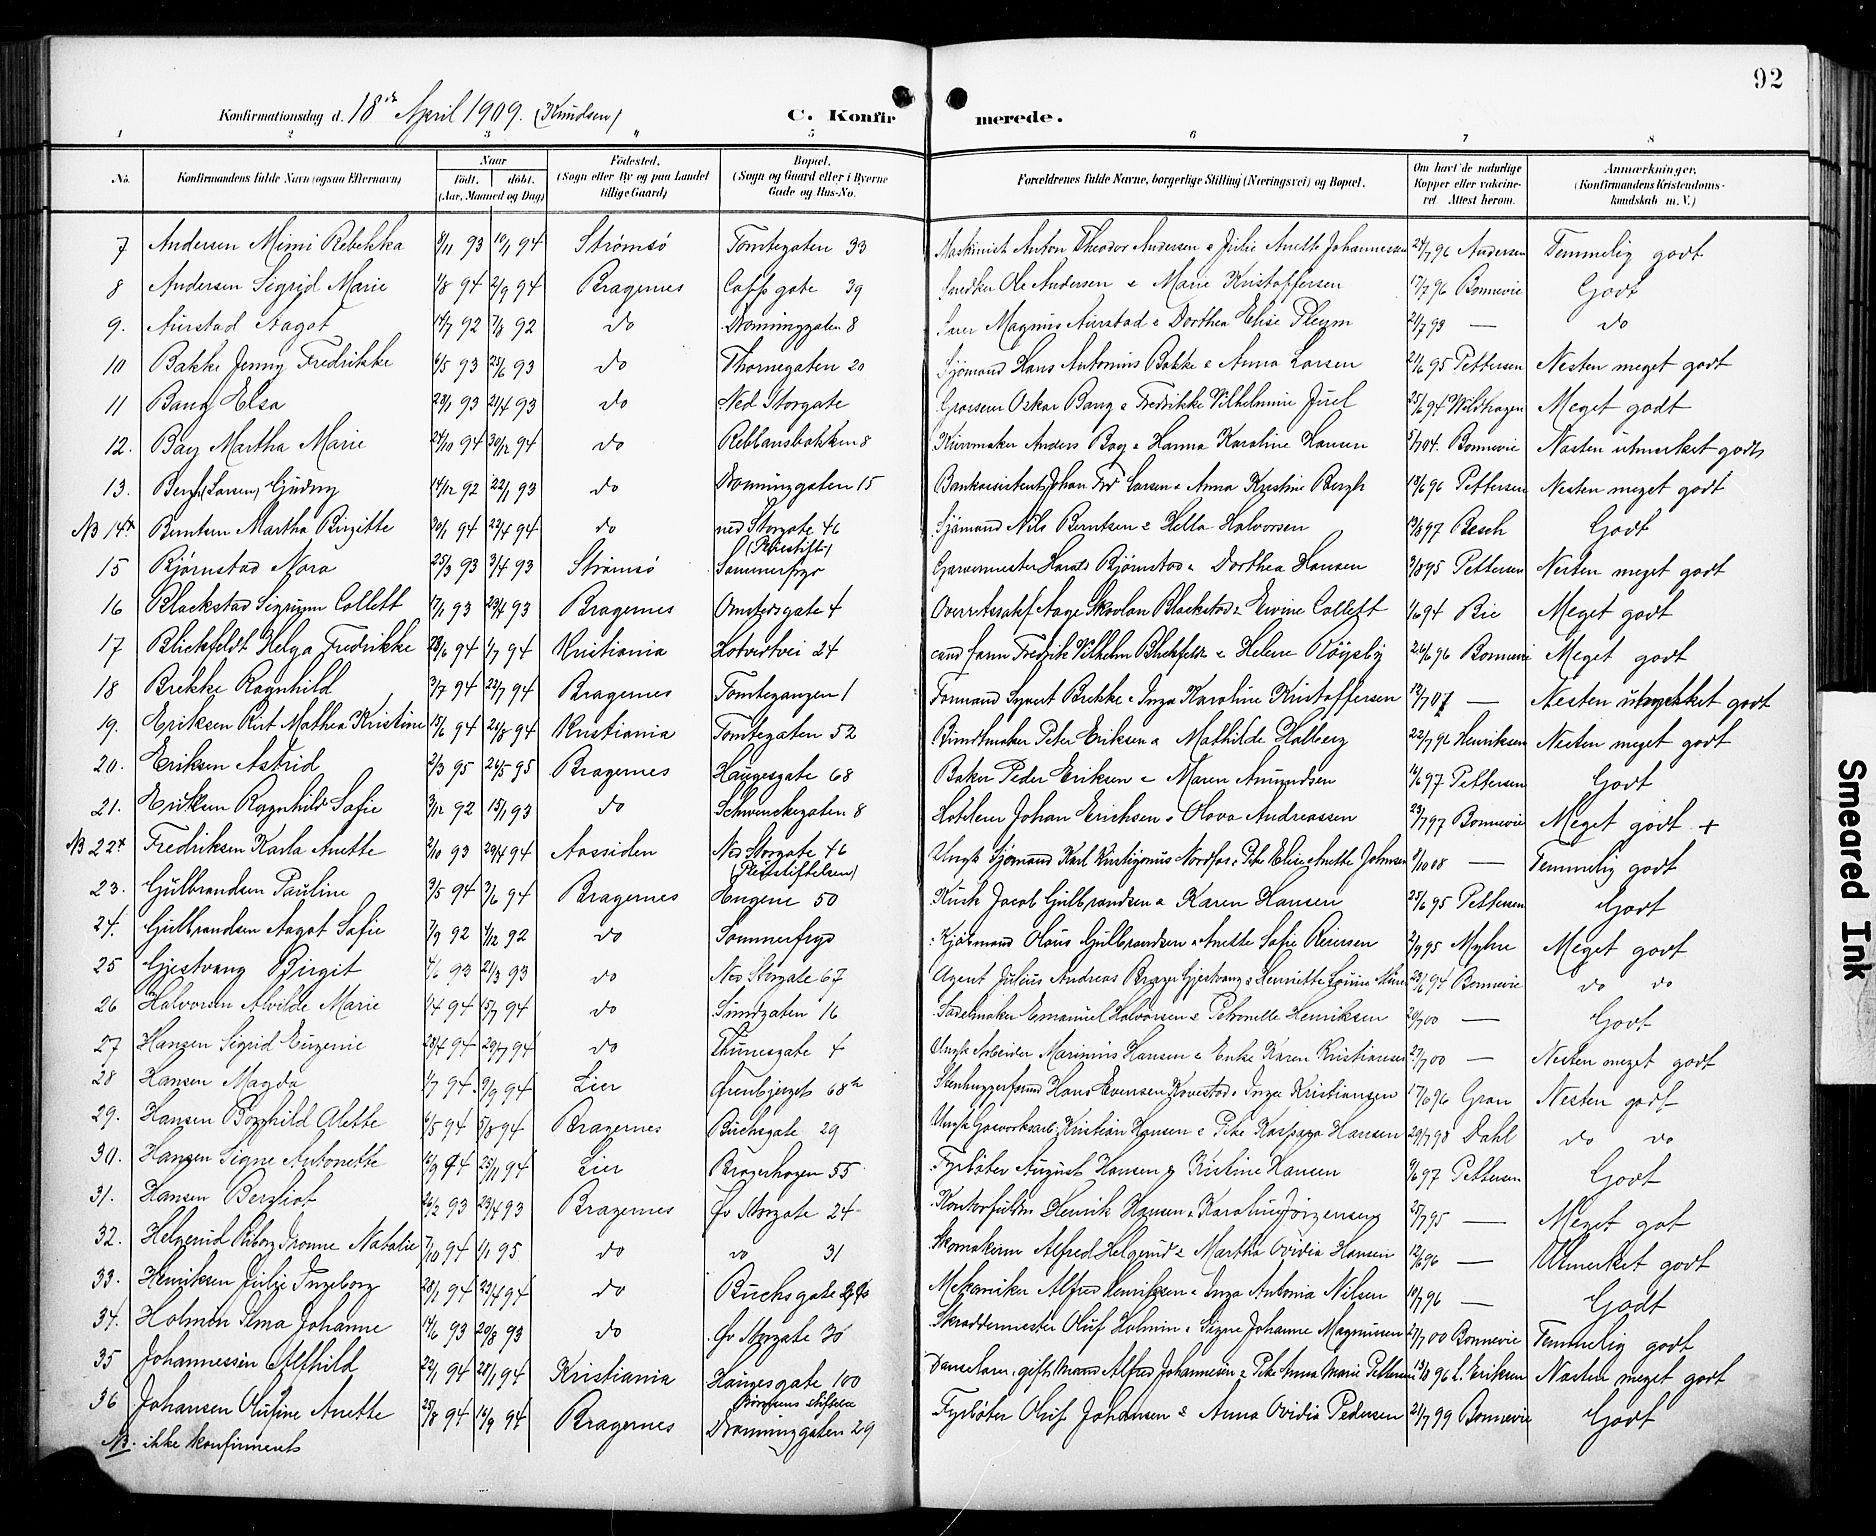 92
Konfirmationsdag d. 18de April 1909. (Knudsen)
C. Konfirmerede.
1 2 3 4 5 6 7 8
No. Konfirmandens fulde Navn (ogsaa Efternavn) Naar født. døbt. (Aar, Maaned og Dag) Fødested. (Sogn eller By og paa Landet tillige Gaard) Bopæl. (Sogn og Gaard eller i Byerne Gade og Hus-No. Forældrenes fulde Navne, borgerlige Stilling (Næringsvei) og Bopæl. Om havt de naturlige Kopper eller vakcineret. Attest herom. Anmærkninger. (Konfirmandens Kristendomskundskab m. V.)
7 Andersen Mimi Rebekka 8/11 93 10/1 94 Strømsø Tomtegaten 33 Maskinist Anton Theodor Andersen & Julie Anette Johannessen 24/7 96 Andersen Temmelig godt
8 Andersen Sigrid Marie 1/8 94 2/9 94 Bragernes Cappsgate 39 Snedker Ole Andersen & Marie Kristoffersen 17/7 96 Bonnevie Godt
9. Aurstad Aagot 14/7 92 7/8 92 do Dronninggaten 8 Magnus Aurstad & Dorthea Elise Pleym 21/7 93 — do
10 Bakke Jenny Fredrikke 6/5 93 25/6 93 do Thornegaten 20 Sjømand Hans Antonius Bakke & Anna Larsen 21/6 95 Pettersen Nesten meget godt
11 Bang Elsa 28/1 93 21/4 93 do Ned Storgate Grosserer Oskar Bang & Fredrikke Vilhelmine Juel 25/6 94 Wildhagen Meget godt
12. Bay Martha Marie 24/10 94 30/12 94 do Reblansbakken 8 Kurvmaker Anders Bay & Hanna Karoline Hansen 5/7 04. Bonnevie Nesten utmerket godt
13. Bergh (Larsen) Gudny 14/12 92 22/1 93 do Dronninggaten 15 Bankassistent Johan Fr. Larsen & Anna Kristine Bergh 13/6 96 Pettersen Nesten meget godt
NB 14x Berntsen Martha Birgitte 30/1 94 22/4 94 do ned Storgate 46 (Pleiestift) Sjømand Nils Berntsen & Hella Halvorsen 13/8 97 Besch Godt
15 Bjørnstad Nora 25/3 93 3/4 93 Strømsø Sommerfryd Garvermester Harald Bjørnstad & Dorthea Hansen 3/8 95 Pettersen Nesten meget godt
16 Blackstad Sigrunn Collett 17/1 93 23/4 93 Bragernes Omstedsgate 4 Overretssakf. Aage Skavlan Blackstad & Evine Collett 1/6 94 Bie Meget godt
17 Blichfeldt Helga Fredrikke 28/6 94 1/7 94 Kristiania Hotvedtvei 24 cand farm Fredrik Vilhelm Blichfeldt & Helene Røysby 26/6 96 Bonnevie Meget godt
18 Brekke Ragnhild 3/7 94 22/7 94 Bragernes Tomtegangen 1 Formand Syvert Brekke & Inga Karoline Kristoffersen 12/7 07 — Nesten utmerket godt
19. Eriksen Rut Mathea Kristine 15/6 94 26/8 94 Kristiania Tomtegaten 52 Buntmaker Peter Eriksen & Mathilde Holberg 22/7 96 Henriksen Nesten meget godt
20. Eriksen Astrid 2/3 95 26/5 95 Bragernes Haugesgate 68 Baker Peder Eriksen & Maren Amundsen 14/6 97 Pettersen Godt
21. Eriksen Ragnhild Sofie 3/12 92 15/1 93 do Schwenckegaten 8 Hotelier Johan Erichsen & Olava Andreassen 23/7 97 Bonnevie Meget godt +
NB 22x Fredriksen Karla Anette 2/10 93 29/4 94 Aassiden Ned Storgate 46 (Pleiestiftelsen) Ungk Sjømand Karl Nordfos & Pike Elise Anette Johnsen 8/10 08 — Temmelig godt
23. Gulbrandsen Pauline 3/5 94 3/6 94 Bragernes Engene 50 Kusk Jacob Gulbrandsen & Karen Hansen 25/6 95 Pettersen Godt
24. Gulbrandsen Aagot Sofie 7/9 92 4/12 92 do Sommerfryd Kjøbmand Olaus Gulbrandsen & Anette Sofie Reiersen 2/9 95 Myhre Meget godt
25 Gjestvang Birgit 4/6 93 21/3 93 do Ned Storgate 67 Agent Julius Andreas Brager Gjestvang & Henriette Louise 23/6 94 Bonnevie do do
26 Halvorsen Alvilde Marie 1/4 94 15/7 94 do Sundgaten 16 Sadelmaker Emanuel Halvorsen & Petronelle Henriksen 20/7 00 — Godt
27 Hansen Sigrid Eugenie 23/4 94 29/7 94 do Thunesgate 4 Ungk Arbeider Marinius Hansen & Enke Karen Kristiansen 27/7 00 — Nesten meget godt
28 Hansen Magda 1/7 94 9/9 94 Lier Ørenbjerget 68 h Stenhuggerformd Hans Evensen Kovestad & Inga Kristiansen 17/6 96 Gran Nesten godt
29. Hansen Borghild Alette 6/5 94 5/8 94 Bragernes Buchsgate 29 Ungk Gasverksarb. Kristian Hansen & Pike Kaspara Hansen 29/7 98 Dahl do do
30. Hansen Signe Antonette 12/9 94 25/11 94 Lier Bragerhagen 55 Fyrbøter August Hansen & Kristine Hansen 9/6 97 Pettersen Godt
31. Hansen Bergliot 26/2 93 23/4 93 Bragernes Øv Storgate 24 Kontorfuldm Henrik Hansen & Karoline Jørgensen 25/7 95 — Meget got
32. Helgerud Viborg Ivonne Natalie 7/10 94 1/1 95 do do 31 Skomakerm Alfred Helgerud & Martha Ovidia Hansen 12/6 96 — Utmerket godt
33. Henriksen Julie Ingeborg 28/1 94 22/4 94 do Buchsgate Mekaniker Alfred Henriksen & Inga Antonia Nilsen 10/7 96 — Godt
34. Holmen Irma Johanne 14/6 93 20/8 93 do Øv Storgate 30 Skræddermester Oluf Holmin & Signe Johanne Magnussen 27/7 00 Bonnevie Temmelig godt
35 Johannessen Alfhild 22/1 94 28/1 94 Kristiania Haugesgate 100 Danselær, gift Mand Alfred Johannesen & Pike Anna Marie Pettersen 13/10 96 L. Eriksen Nesten meget godt
36 Johansen Olufine Anette 25/8 94 16/9 94 Bragernes Dronninggaten 29 Fyrbøter Oluf Johansen & Anna Ovidia Pedersen 21/7 99 Bonnevie Godt
NB. ikke konfirmerets
Smeared Ink